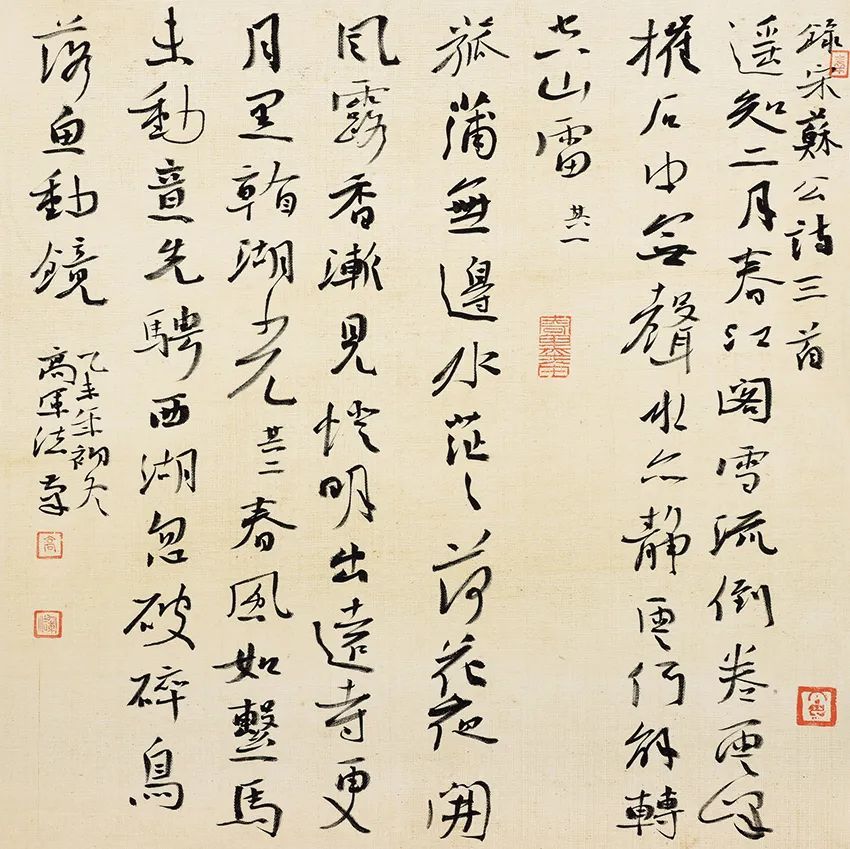 錄宋蘇公詩三首
遥知二月春江閣雪流倒卷雲峰
摧石中無聲水亦静雲何解轉
空山雷 其一
菰蒲無邊水茫々荷花夜開
風露香漸見燈明出遠寺更
月黑看湖光 其二 春風如繫馬
未動意先騁西湖忽破碎鳥
落魚動鏡
乙未年初冬
高軍法書